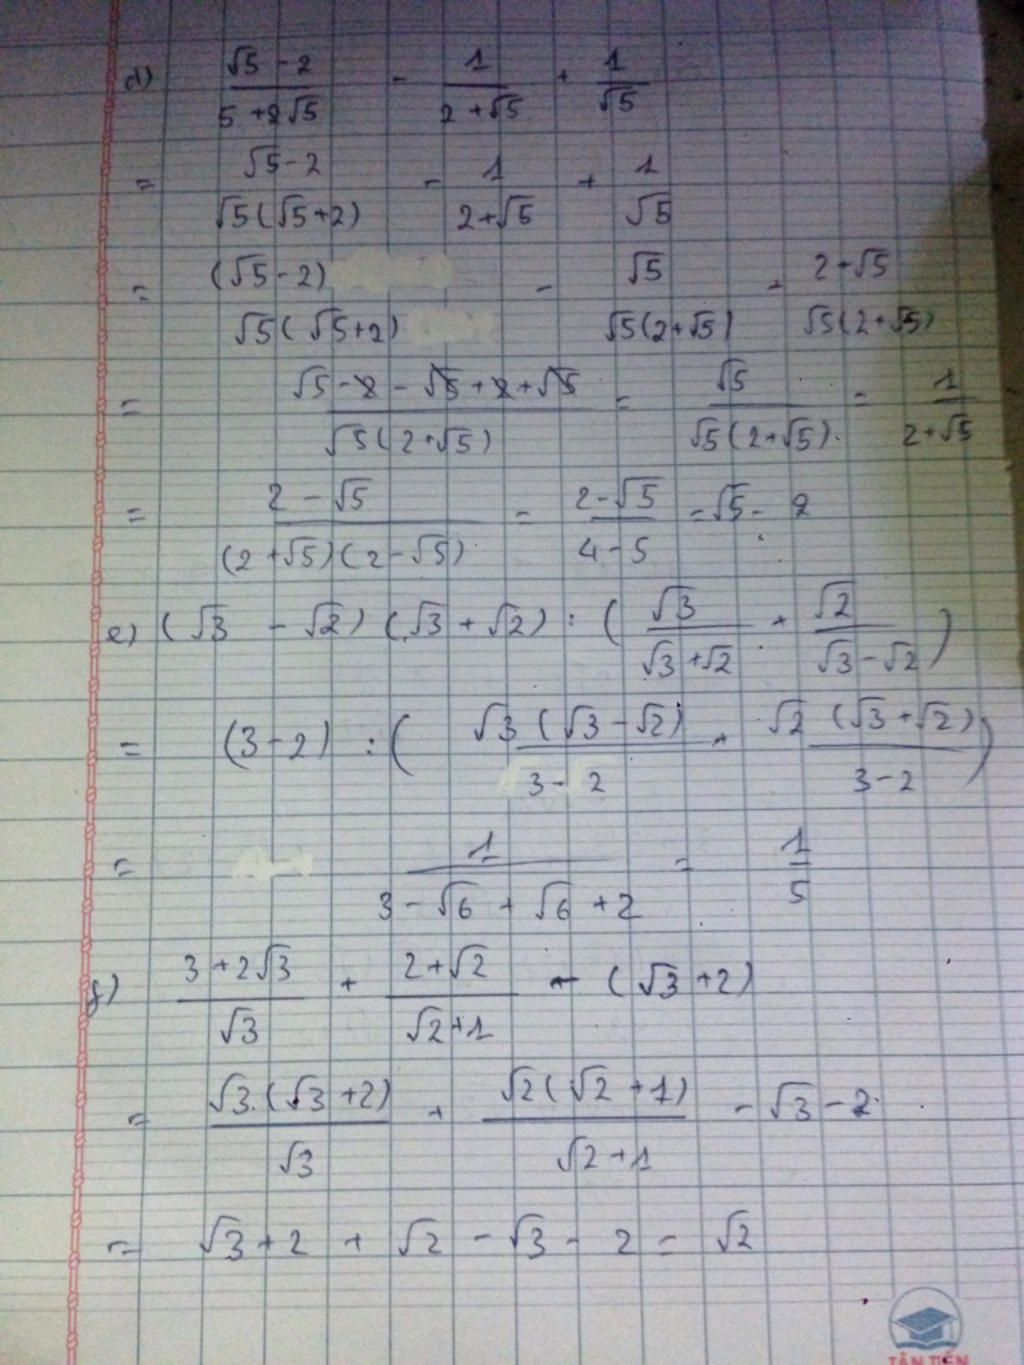 d) (√5 - 2)/(5 + 2√5) - 1/(2 + √5) + 1/√5
= (√5 - 2)/(√5(√5 + 2)) - 1/(2 + √5) + 1/√5
= (√5 - 2)/(√5(√5 + 2)) - √5/(√5(2 + √5)) + (2 + √5)/(√5(2 + √5))
= (√5 - 2 - √5 + 2 + √5)/(√5(2 + √5)) = √5/(√5(2 + √5)) = 1/(2 + √5)
= (2 - √5)/((2 + √5)(2 - √5)) = (2 - √5)/(4 - 5) = √5 - 2
e) (√3 - √2)(√3 + √2) : (√3/(√3 + √2) + √2/(√3 - √2))
= (3 - 2) : (√3(√3 - √2)/(3 - 2) + √2(√3 + √2)/(3 - 2))
= 1/(3 - √6 + √6 + 2) = 1/5
f) (3 + 2√3)/√3 + (2 + √2)/(√2 + 1) - (√3 + 2)
= √3.(√3 + 2)/√3 + √2(√2 + 1)/(√2 + 1) - √3 - 2
= √3 + 2 + √2 - √3 - 2 = √2
TÂN TIẾN